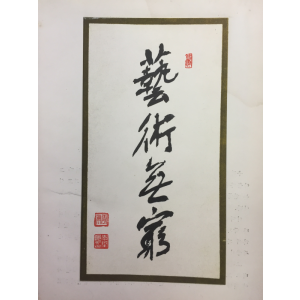 藝術無窮